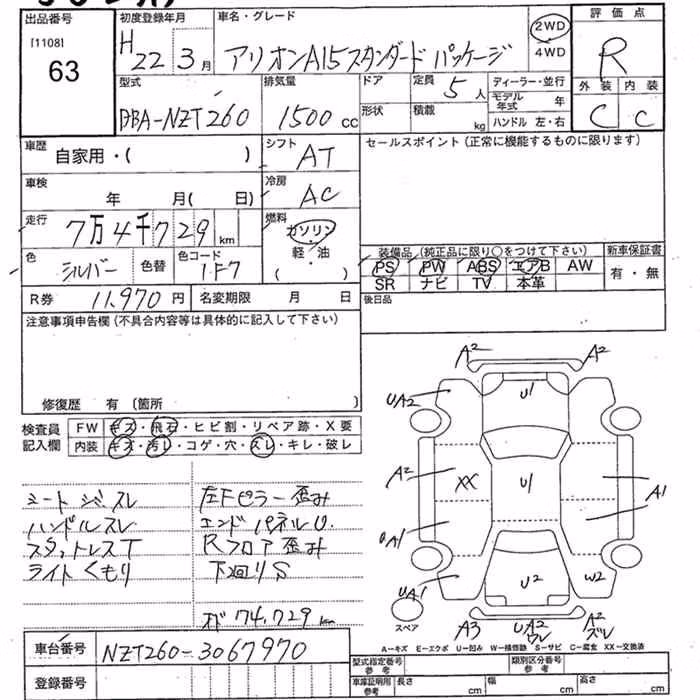 出品番号
[1108]
63
初度登録年月
H 22 3月
車名・グレード
アリオンA15スタンダード パッケージ
2WD
4WD
評価点
R
外装 内装
C C
型式
DBA-NZT260
排気量
1500 cc
ドア
形状
定員 5人
積載 kg
ディーラー・並行
モデル年式 年
ハンドル 左・右
車歴
自家用・( )
シフト
AT
セールスポイント(正常に機能するものに限ります)
車検
年 月( 日)
冷房
AC
走行
7万4千729km
燃料
ガソリン
軽・油
( )
色
シルバー
色替
色コード
1F7
装備品(純正品に限り○をつけて下さい)
PS PW ABS エアB AW
SR ナビ TV 本革
新車保証書
有・無
R券 11,970円
名変期限 月 日
後日品
注意事項申告欄(不具合内容等は具体的に記入して下さい)
修復歴 有(箇所 )
検査員記入欄
FW キズ・飛石・ヒビ割・リペア跡・X要
内装 キズ・汚レ・コゲ・穴・スレ・キレ・破レ
シートシミ スレ
ハンドルスレ
スタットレスT
ライトくもり
左Fピラー歪み
エンドパネルU
Rフロア歪み
下廻りS
オド 74,729km
A2 A2
UA2 U1
A2 XX U1 A1
UA1
UA1 U2 W2
スペア
A3 UA2 ワレ A2 ズレ
A−キズ E−エクボ U−凹み W−補修跡 S−サビ C−腐食 XX−交換済
車台番号
NZT260-3067970
登録番号
型式指定番号 参考
類別区分番号 参考
車庫証明用 参考
長さ cm
幅 cm
高さ cm